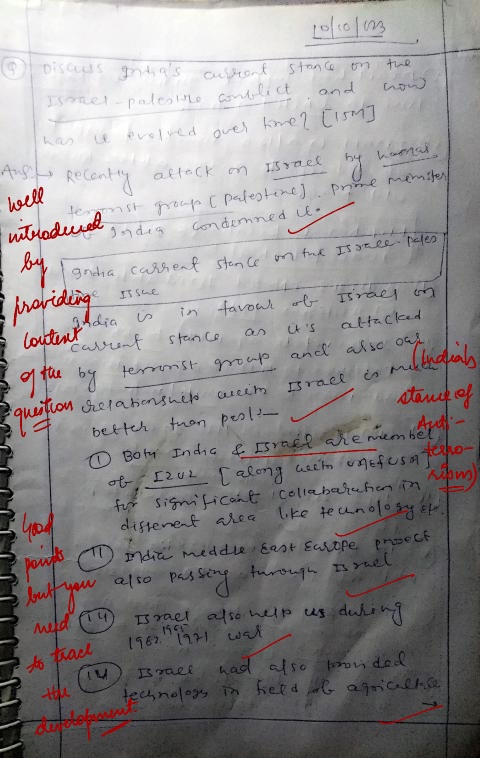 10/10/23
Q Discuss India's current stance on the
Israel-palestine conflict. and how
has it evolved over time? [15M]
Ans:→ Recently attack on Israel by hamas
terrorist group [palestine]. prime minister
of India condemned it.
India current stance on the Israel-pales
tine issue
India is in favour of Israel on
current stance as it's attacked
by terrorist group and also our
relationship with Israel is much
better than past:-
① Both India & Israel are member
of I2U2 [along with UAE & USA]
for significant collabaration in
different area like technology etc.
⑪ India middle East Europe project
also passing through Israel
Israel also help us during
1962, 1965, 1971 war
Israel had also provided
technology in field of agriculture
→
Well
introduced
by
providing
content
of the
question
(India's
stance of
Anti-
terro-
rism)
Good
points
but you
need
to trace
the
development